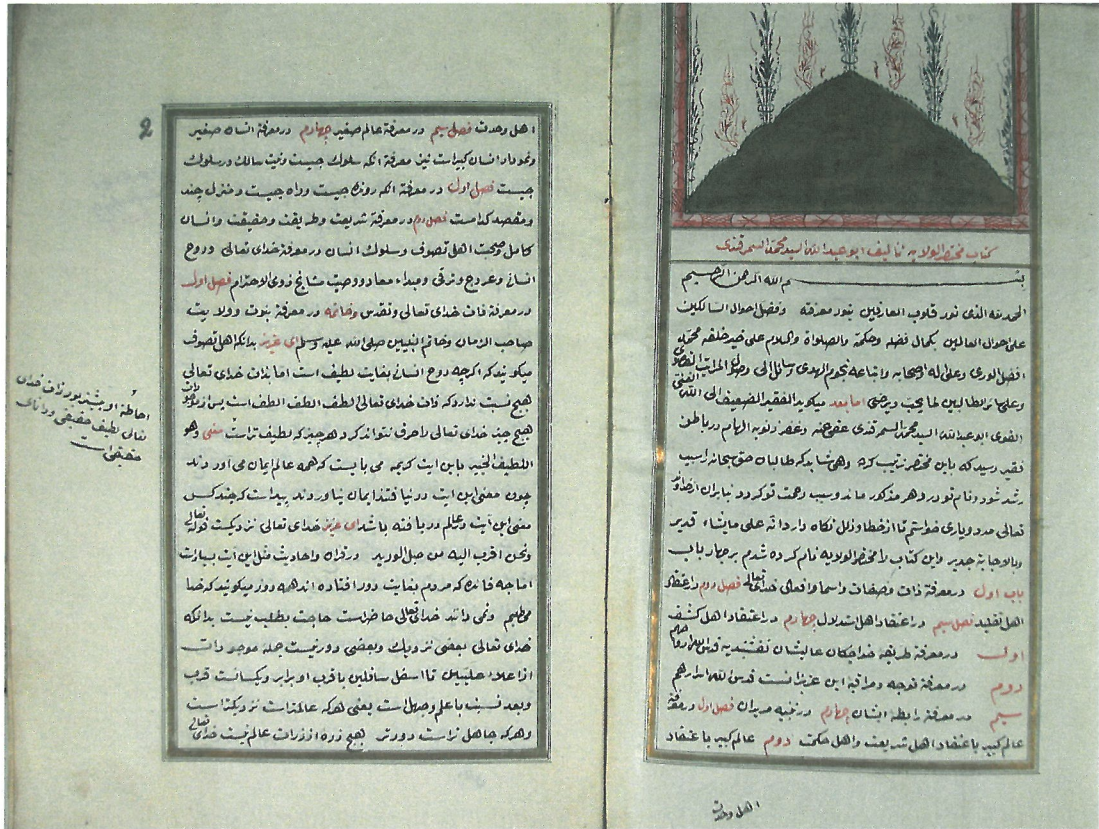 کتاب مختصر الولایه تالیف ابو عبدالله السید محمد السمرقندی
بسم الله الرحمن الرحیم
الحمد لله الذی نور قلوب العارفین بنور معرفته وفضل احوال السالکین
علی احوال العالمین بکمال فضله وحکمته والصلواة والسلام علی خیر خلقه محمد
افضل الوری وعلی اله واصحابه واتباعه نجوم الهدی
وعلی سائر الطالبین لما یحب ویرضی اما بعد میکوید الفقیر الضعیف الی الله الغنی
القوی ابو عبدالله السید محمد السمرقندی عفی عنه وغفر ذنوبه الهام در باطن
فقیر رسید که باین مختصر ترتیب کرده وهی شاید که طالبان حق سبحانه را سبب
رشد شود ونام تو در دهر مذکور ماند وسبب رحمت تو کردد بنابران از خداوند
تعالی مدد ویاری خواستم تا از خطا وزلل نکاه دارد انه علی ما یشاء قدیر
وبالاجابة جدیر واین کتاب را مختصر الولایه نام کرده شدم بر چهار باب
باب اول در معرفة ذات وصفات واسما وافعال خدای تعالی فصل دوم در اعتقاد
اهل تقلید فصل سیم در اعتقاد اهل استدلال چهارم در اعتقاد اهل کشف
اول در معرفة طریقه خواجکان عالیشان نقشبندیه قدس الله ارواحهم
دوم در معرفة توجه ومراقبة این عزیزانست قدس الله اسرارهم
سیم در معرفة رابطة ایشان چهارم در تنبیه مریدان فصل اول در معرفة
عالم کبیر باعتقاد اهل شریعت واهل حکمت دوم عالم کبیر باعتقاد
اهل وحدت
2
اهل وحدت فصل سیم در معرفة عالم صغیر چهارم در معرفة انسان صغیر
ونمودار انسان کبیر است نیز معرفة انکه سلوک چیست ونیت سالک در سلوک
چیست فصل اول در معرفة انکه رونده چیست وراه چیست ومنزل چند
ومقصد کدامست فصل دوم در معرفة شریعت وطریقت وحقیقت وانسان
کامل وصحبت اهل تصوف وسلوک انسان در معرفة خدای تعالی وروح
انسانی وعروج وترقی ومبداء ومعاد ووصیت مشایخ ذوی الاحترام فصل اول
در معرفة ذات خدای تعالی وتقدس وخاتمه در معرفة نبوت وولایت
صاحب الزمان وخاتم النبیین صلی الله علیه وسلم ای عزیز بدانکه اهل تصوف
میکویند که اکرچه روح انسانی بغایت لطیف است اما بذات خدای تعالی
هیچ نسبت ندارد که ذات خدای تعالی لطف الطف الطف است پس از
هیچ چیز خدای تعالی را حرف نتواند کرد هر چیز که لطیف تر است معنی وهو
اللطیف الخبیر باین ایت کریمه می بایست که همه عالم ایمان می اوردند
چون معنی این ایت در نیافتند ایمان نیاوردند پیداست که چند کس
معنی این ایت در عالم دریافته باشد ای عزیز خدای تعالی نزدیکست قوله تعالی
ونحن اقرب الیه من حبل الورید در قران واحادیث مثل این ایت بسیارست
اما چه فائده که مردم بغایت دور افتاده اند همه روز میکویند که خدا
می طلبیم ونمی دانند خدای تعالی حاضر است حاجت بطلب نیست بدانکه
خدای تعالی ببعضی نزدیک وببعضی دور نیست جمله موجودات
از اعلا علیین تا اسفل سافلین با قرب او برابر ویکسانست قرب
وبعد نسبت باعلم وجهل است یعنی هر که عالمتر است نزدیکتر است
وهر که جاهل تر است دورتر هیچ ذره از ذرات عالم نیست خدای تعالی
احاطة او نیست بدو ذات خدای
تعالی لطیف حقیقی ودانای
حقیقی است